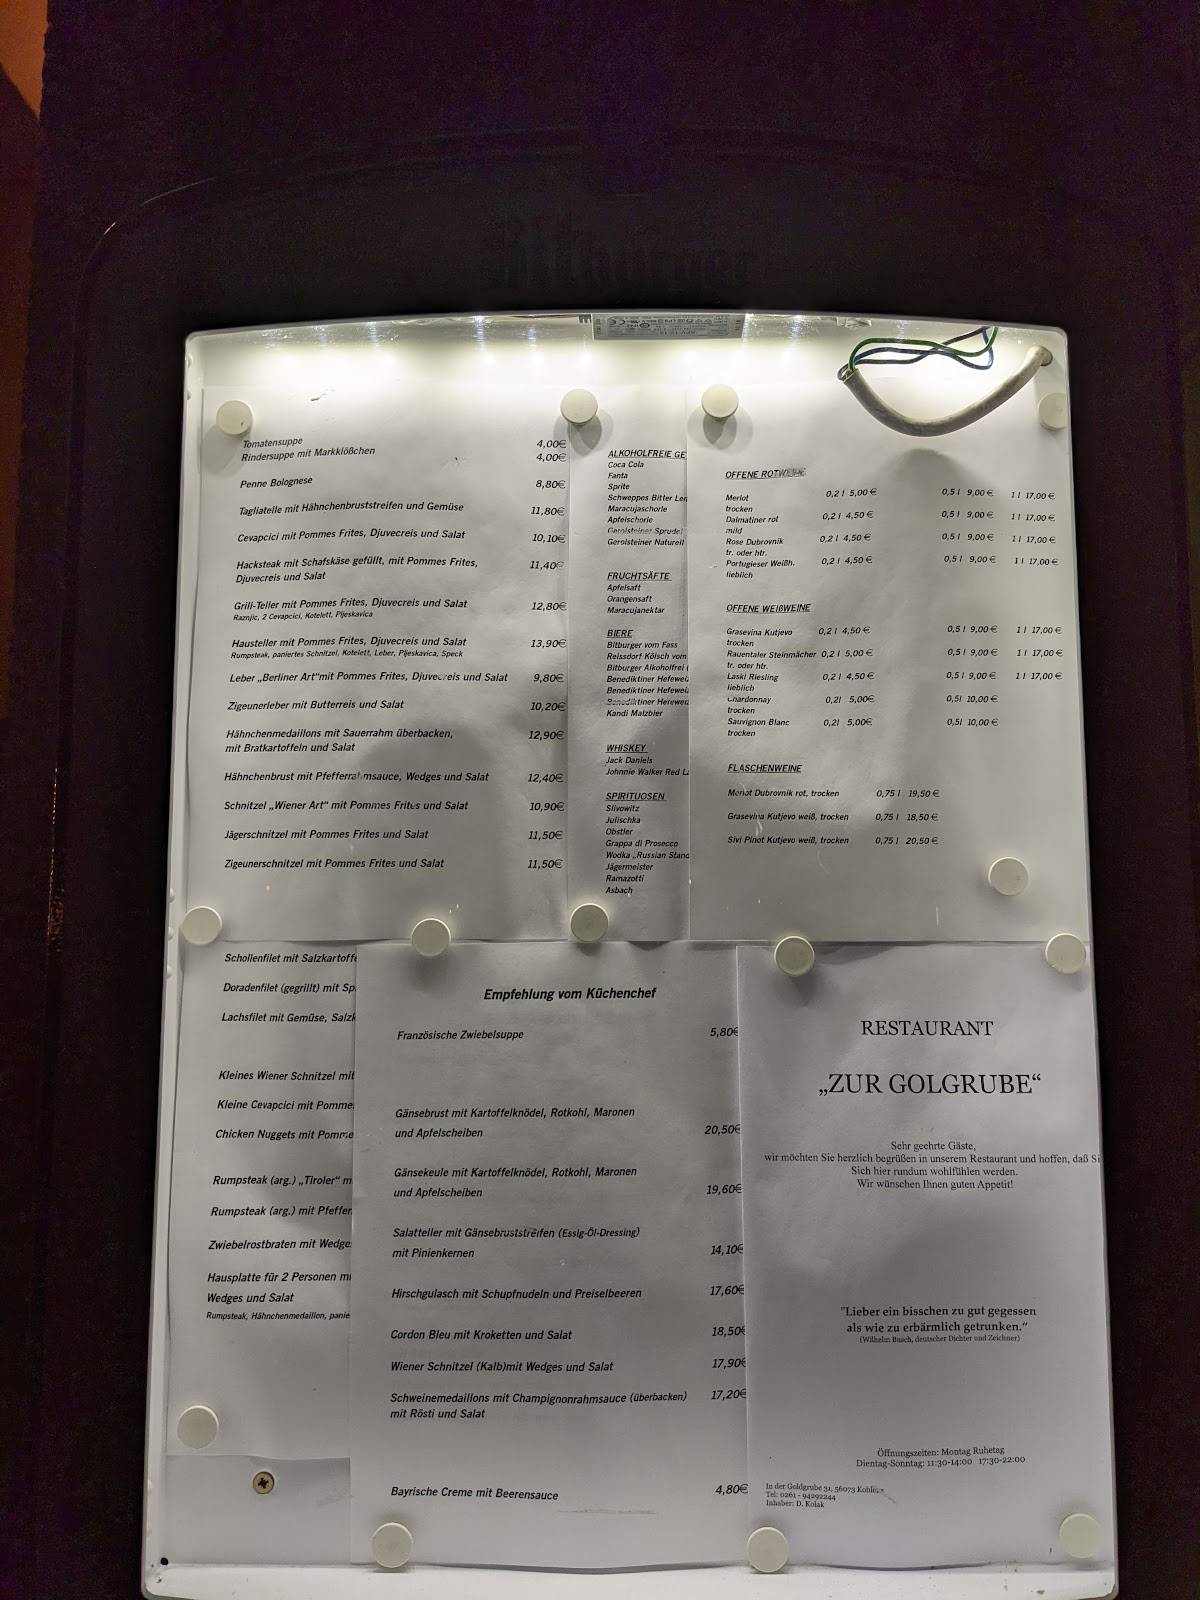 Tomatensuppe 4,00€
Rindersuppe mit Markklößchen 4,00€
Penne Bolognese 8,80€
Tagliatelle mit Hähnchenbruststreifen und Gemüse 11,80€
Cevapcici mit Pommes Frites, Djuvecreis und Salat 10,10€
Hacksteak mit Schafskäse gefüllt, mit Pommes Frites, 11,40€
Djuvecreis und Salat
Grill-Teller mit Pommes Frites, Djuvecreis und Salat 12,80€
Raznjic, 2 Cevapcici, Kotelett, Pljeskavica
Hausteller mit Pommes Frites, Djuvecreis und Salat 13,90€
Rumpsteak, paniertes Schnitzel, Kotelett, Leber, Pljeskavica, Speck
Leber „Berliner Art“mit Pommes Frites, Djuvecreis und Salat 9,80€
Zigeunerleber mit Butterreis und Salat 10,20€
Hähnchenmedaillons mit Sauerrahm überbacken, 12,90€
mit Bratkartoffeln und Salat
Hähnchenbrust mit Pfefferrahmsauce, Wedges und Salat 12,40€
Schnitzel „Wiener Art“ mit Pommes Frites und Salat 10,90€
Jägerschnitzel mit Pommes Frites und Salat 11,50€
Zigeunerschnitzel mit Pommes Frites und Salat 11,50€
ALKOHOLFREIE GE
Coca Cola
Fanta
Sprite
Schweppes Bitter Lem
Maracujaschorle
Apfelschorle
Gerolsteiner Sprudel
Gerolsteiner Naturell
FRUCHTSÄFTE
Apfelsaft
Orangensaft
Maracujanektar
BIERE
Bitburger vom Fass
Reissdorf Kölsch vom
Bitburger Alkoholfrei
Benediktiner Hefeweiz
Benediktiner Hefeweiz
Benediktiner Hefeweiz
Kandi Malzbier
WHISKEY
Jack Daniels
Johnnie Walker Red La
SPIRITUOSEN
Slivowitz
Julischka
Obstler
Grappa di Prosecco
Wodka „Russian Stand
Jägermeister
Ramazotti
Asbach
OFFENE ROTWEINE
Merlot 0,2 l 5,00 € 0,5 l 9,00 € 1 l 17,00 €
trocken
Dalmatiner rot 0,2 l 4,50 € 0,5 l 9,00 € 1 l 17,00 €
mild
Rose Dubrovnik 0,2 l 4,50 € 0,5 l 9,00 € 1 l 17,00 €
tr. oder htr.
Portugieser Weißh. 0,2 l 4,50 € 0,5 l 9,00 € 1 l 17,00 €
lieblich
OFFENE WEIßWEINE
Grasevina Kutjevo 0,2 l 4,50 € 0,5 l 9,00 € 1 l 17,00 €
trocken
Rauentaler Steinmächer 0,2 l 5,00 € 0,5 l 9,00 € 1 l 17,00 €
tr. oder htr.
Laski Riesling 0,2 l 4,50 € 0,5 l 9,00 € 1 l 17,00 €
lieblich
Chardonnay 0,2l 5,00€ 0,5l 10,00 €
trocken
Sauvignon Blanc 0,2l 5,00€ 0,5l 10,00 €
trocken
FLASCHENWEINE
Merlot Dubrovnik rot, trocken 0,75 l 19,50 €
Grasevina Kutjevo weiß, trocken 0,75 l 18,50 €
Sivi Pinot Kutjevo weiß, trocken 0,75 l 20,50 €
Schollenfilet mit Salzkartoffe
Doradenfilet (gegrillt) mit Sp
Lachsfilet mit Gemüse, Salzk
Kleines Wiener Schnitzel mit
Kleine Cevapcici mit Pomme
Chicken Nuggets mit Pomme
Rumpsteak (arg.) „Tiroler“ m
Rumpsteak (arg.) mit Pfeffer
Zwiebelrostbraten mit Wedge
Hausplatte für 2 Personen mi
Wedges und Salat
Rumpsteak, Hähnchenmedaillon, panie
Empfehlung vom Küchenchef
Französische Zwiebelsuppe 5,80€
Gänsebrust mit Kartoffelknödel, Rotkohl, Maronen
und Apfelscheiben 20,50€
Gänsekeule mit Kartoffelknödel, Rotkohl, Maronen
und Apfelscheiben 19,60€
Salatteller mit Gänsebruststreifen (Essig-Öl-Dressing)
mit Pinienkernen 14,10€
Hirschgulasch mit Schupfnudeln und Preiselbeeren 17,60€
Cordon Bleu mit Kroketten und Salat 18,50€
Wiener Schnitzel (Kalb)mit Wedges und Salat 17,90€
Schweinemedaillons mit Champignonrahmsauce (überbacken) 17,20€
mit Rösti und Salat
Bayrische Creme mit Beerensauce 4,80€
RESTAURANT
„ZUR GOLGRUBE“
Sehr geehrte Gäste,
wir möchten Sie herzlich begrüßen in unserem Restaurant und hoffen, daß Si
Sich hier rundum wohlfühlen werden.
Wir wünschen Ihnen guten Appetit!
"Lieber ein bisschen zu gut gegessen
als wie zu erbärmlich getrunken.“
(Wilhelm Busch, deutscher Dichter und Zeichner)
Öffnungszeiten: Montag Ruhetag
Dientag-Sonntag: 11:30-14:00 17:30-22:00
In der Goldgrube 31, 56073 Koblenz
Tel: 0261 - 94292244
Inhaber: D. Kolak